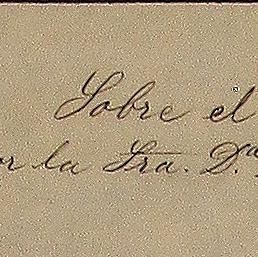 Sobre el
or la Sra. D.ª